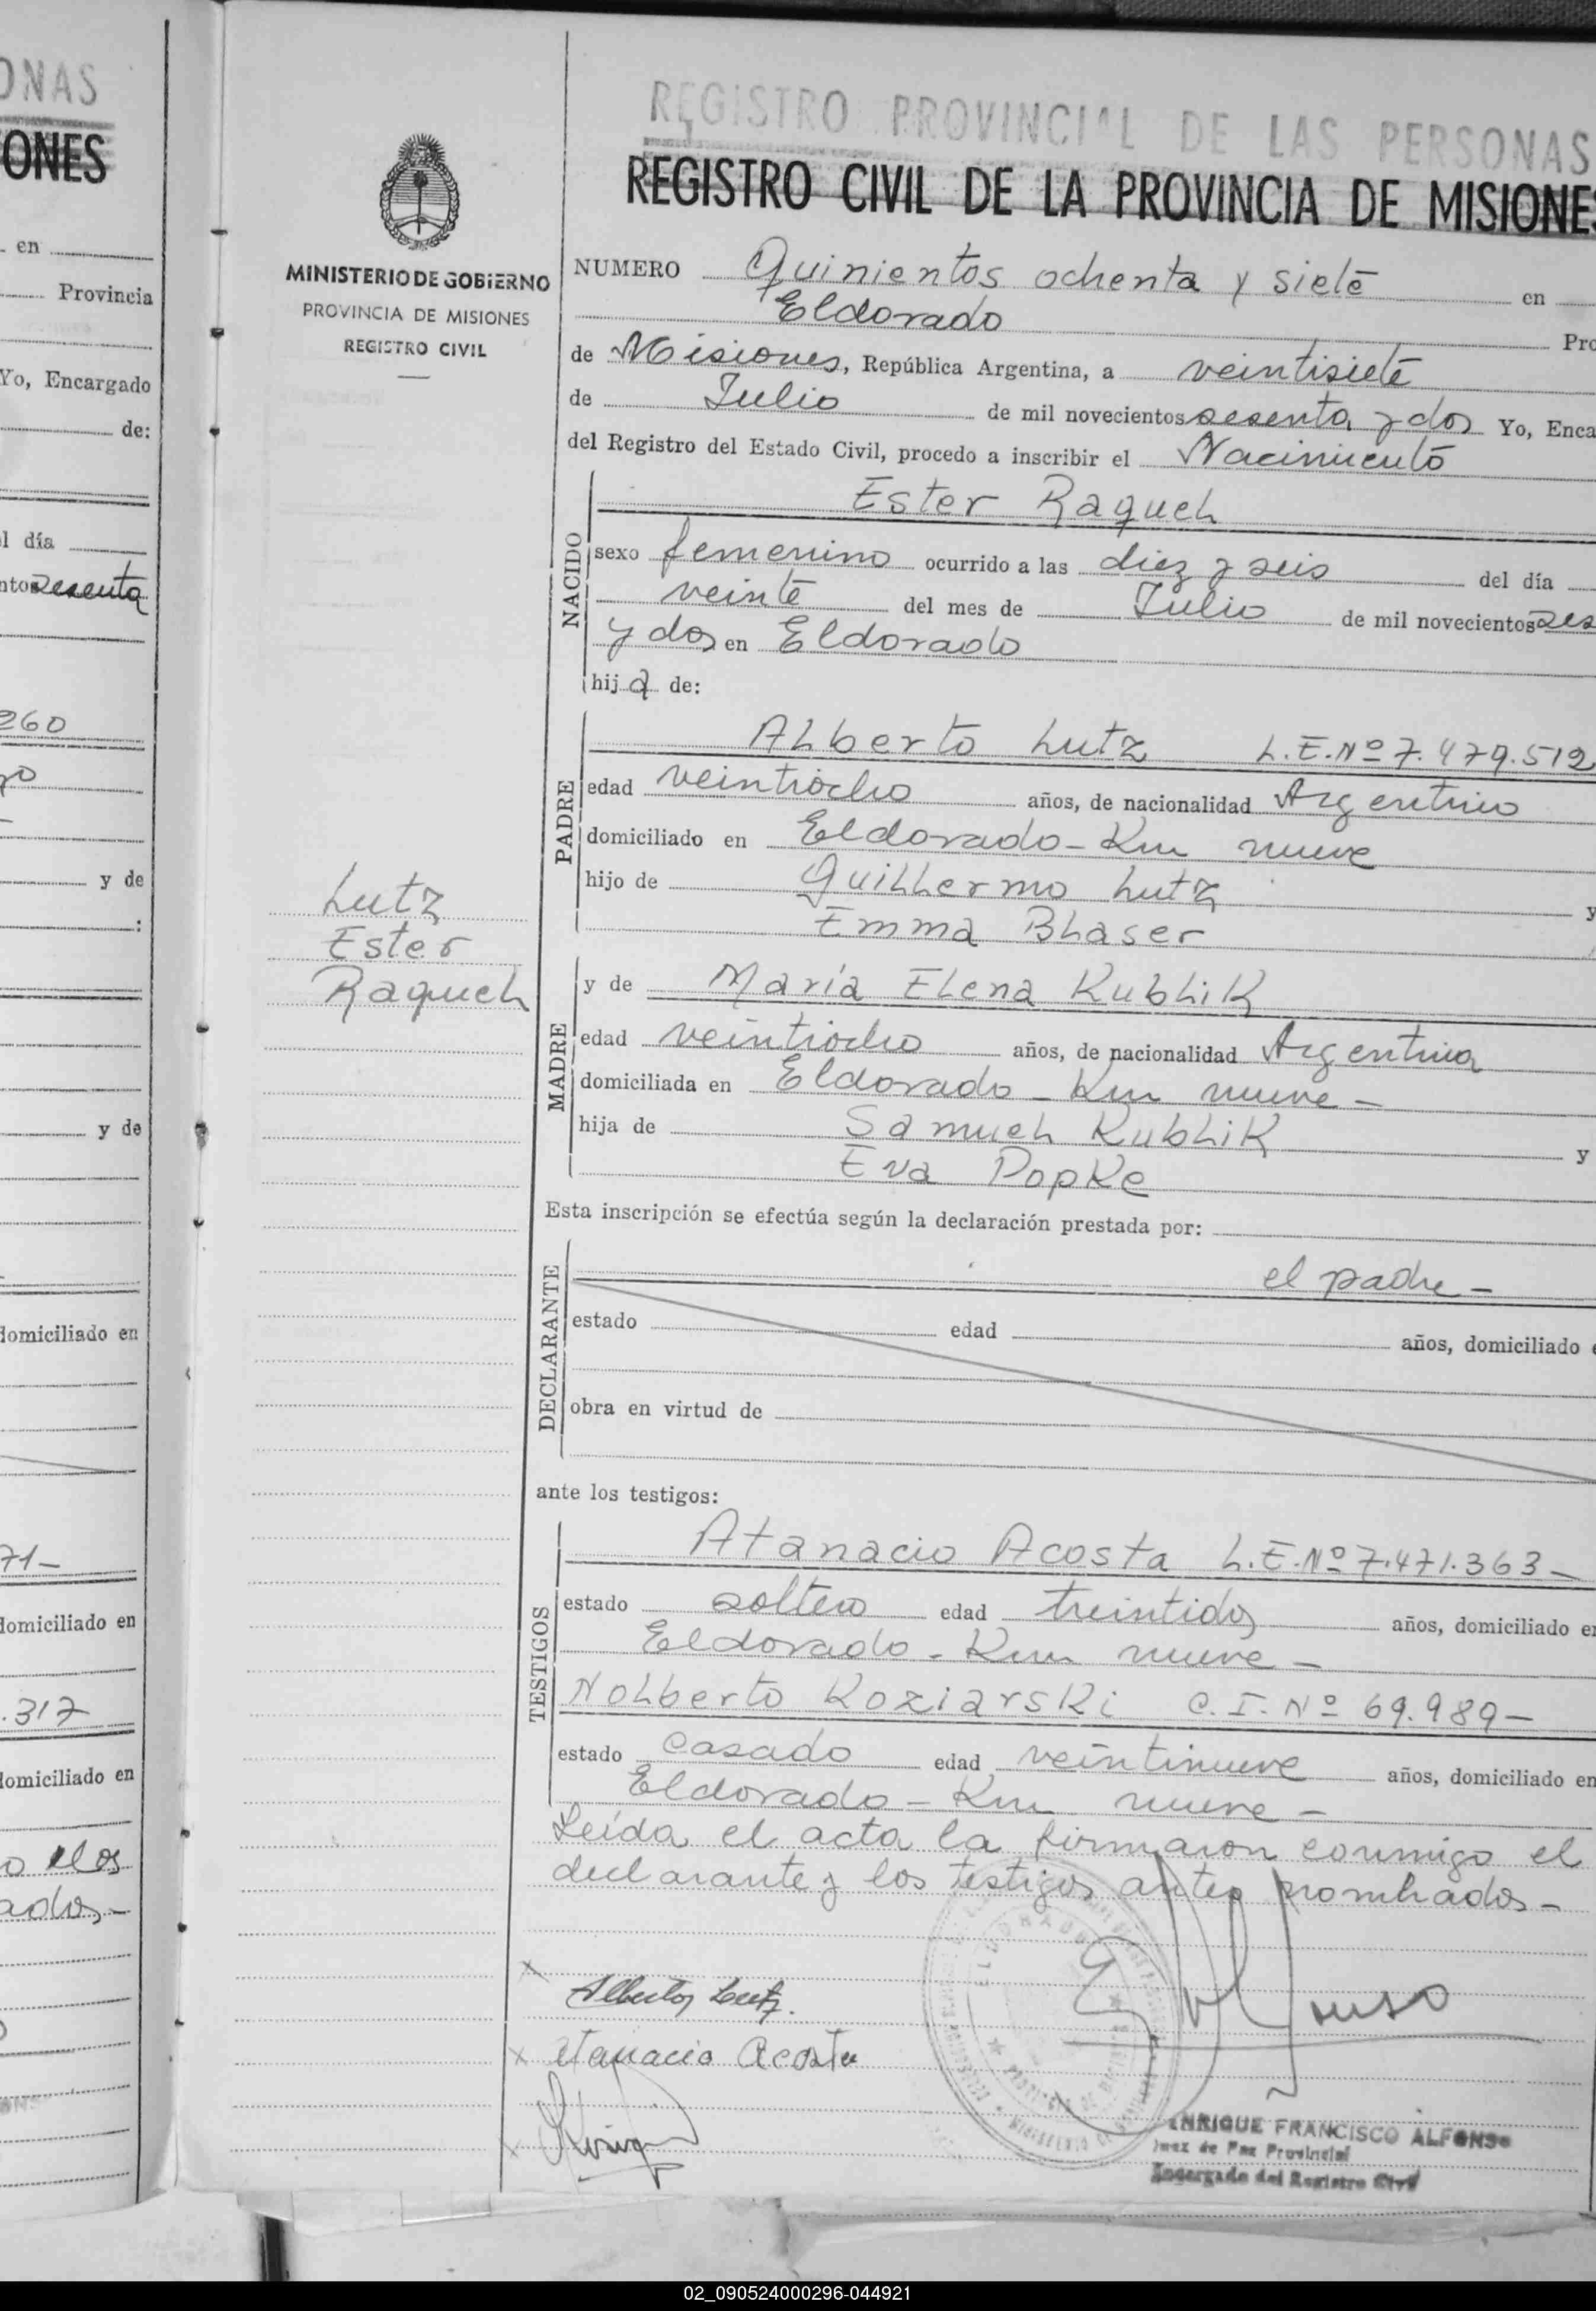 ONAS
ONES
en
Provincia
Yo, Encargado
de:
l día
ntos sesenta
260
y de
:
y de
domiciliado en
71-
domiciliado en
.317
domiciliado en
o los
ados-
MINISTERIO DE GOBIERNO
PROVINCIA DE MISIONES
REGISTRO CIVIL
Lutz
Ester
Raquel
REGISTRO PROVINCIAL DE LAS PERSONAS
REGISTRO CIVIL DE LA PROVINCIA DE MISIONES
NUMERO Quinientos ochenta y siete en
Eldorado Pro
de Misiones, República Argentina, a veintisiete
de Julio de mil novecientos sesenta y dos Yo, Enca
del Registro del Estado Civil, procedo a inscribir el Nacimiento
NACIDO
Ester Raquel
sexo femenino ocurrido a las diez y seis del día
veinte del mes de Julio de mil novecientos ses
y dos en Eldorado
hija de:
PADRE
Alberto Lutz L.E.Nº 7.479.512
edad veintiocho años, de nacionalidad Argentino
domiciliado en Eldorado - Km nueve
hijo de Guillermo Lutz y
Emma Blaser
MADRE
y de María Elena Kublik
edad veintiocho años, de nacionalidad Argentina
domiciliada en Eldorado - Km nueve -
hija de Samuel Kublik y
Eva Popke
Esta inscripción se efectúa según la declaración prestada por:
DECLARANTE
el padre -
estado edad años, domiciliado e
obra en virtud de
ante los testigos:
TESTIGOS
Atanacio Acosta L.E.Nº 7.471.363 -
estado soltero edad treintidos años, domiciliado en
Eldorado - Km nueve -
Nolberto Koziarski C.I. Nº 69.989 -
estado casado edad veintinueve años, domiciliado en
Eldorado - Km nueve -
Leída el acta la firmaron conmigo el
declarante y los testigos antes nombrados -
x Alberto Lutz.
x Atanacio Acosta
x
ELDORADO
ENRIQUE FRANCISCO ALFONSO
Juez de Paz Provincial
Encargado del Registro Civil
02_090524000296-044921